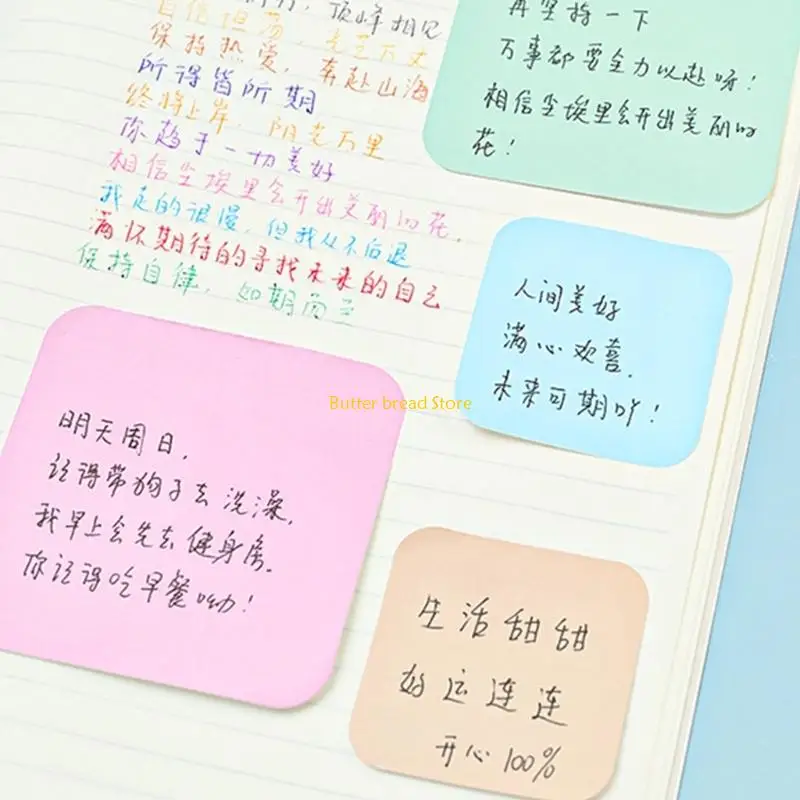 顶峰相见
自信坦荡，光芒万丈
保持热爱，奔赴山海
所得皆所期
终将上岸，阳光万里
你趋于一切美好
相信尘埃里会开出美丽的花，
我走的很慢，但我从不后退
满怀期待的寻找未来的自己
保持自律，如期而至
再坚持一下
万事都要全力以赴呀！
相信尘埃里会开出美丽的
花！
人间美好
满心欢喜，
未来可期吖！
Butter bread Store
明天周日，
记得带狗子去洗澡，
我早上会先去健身房，
你记得吃早餐呦！
生活甜甜
好运连连
开心100%